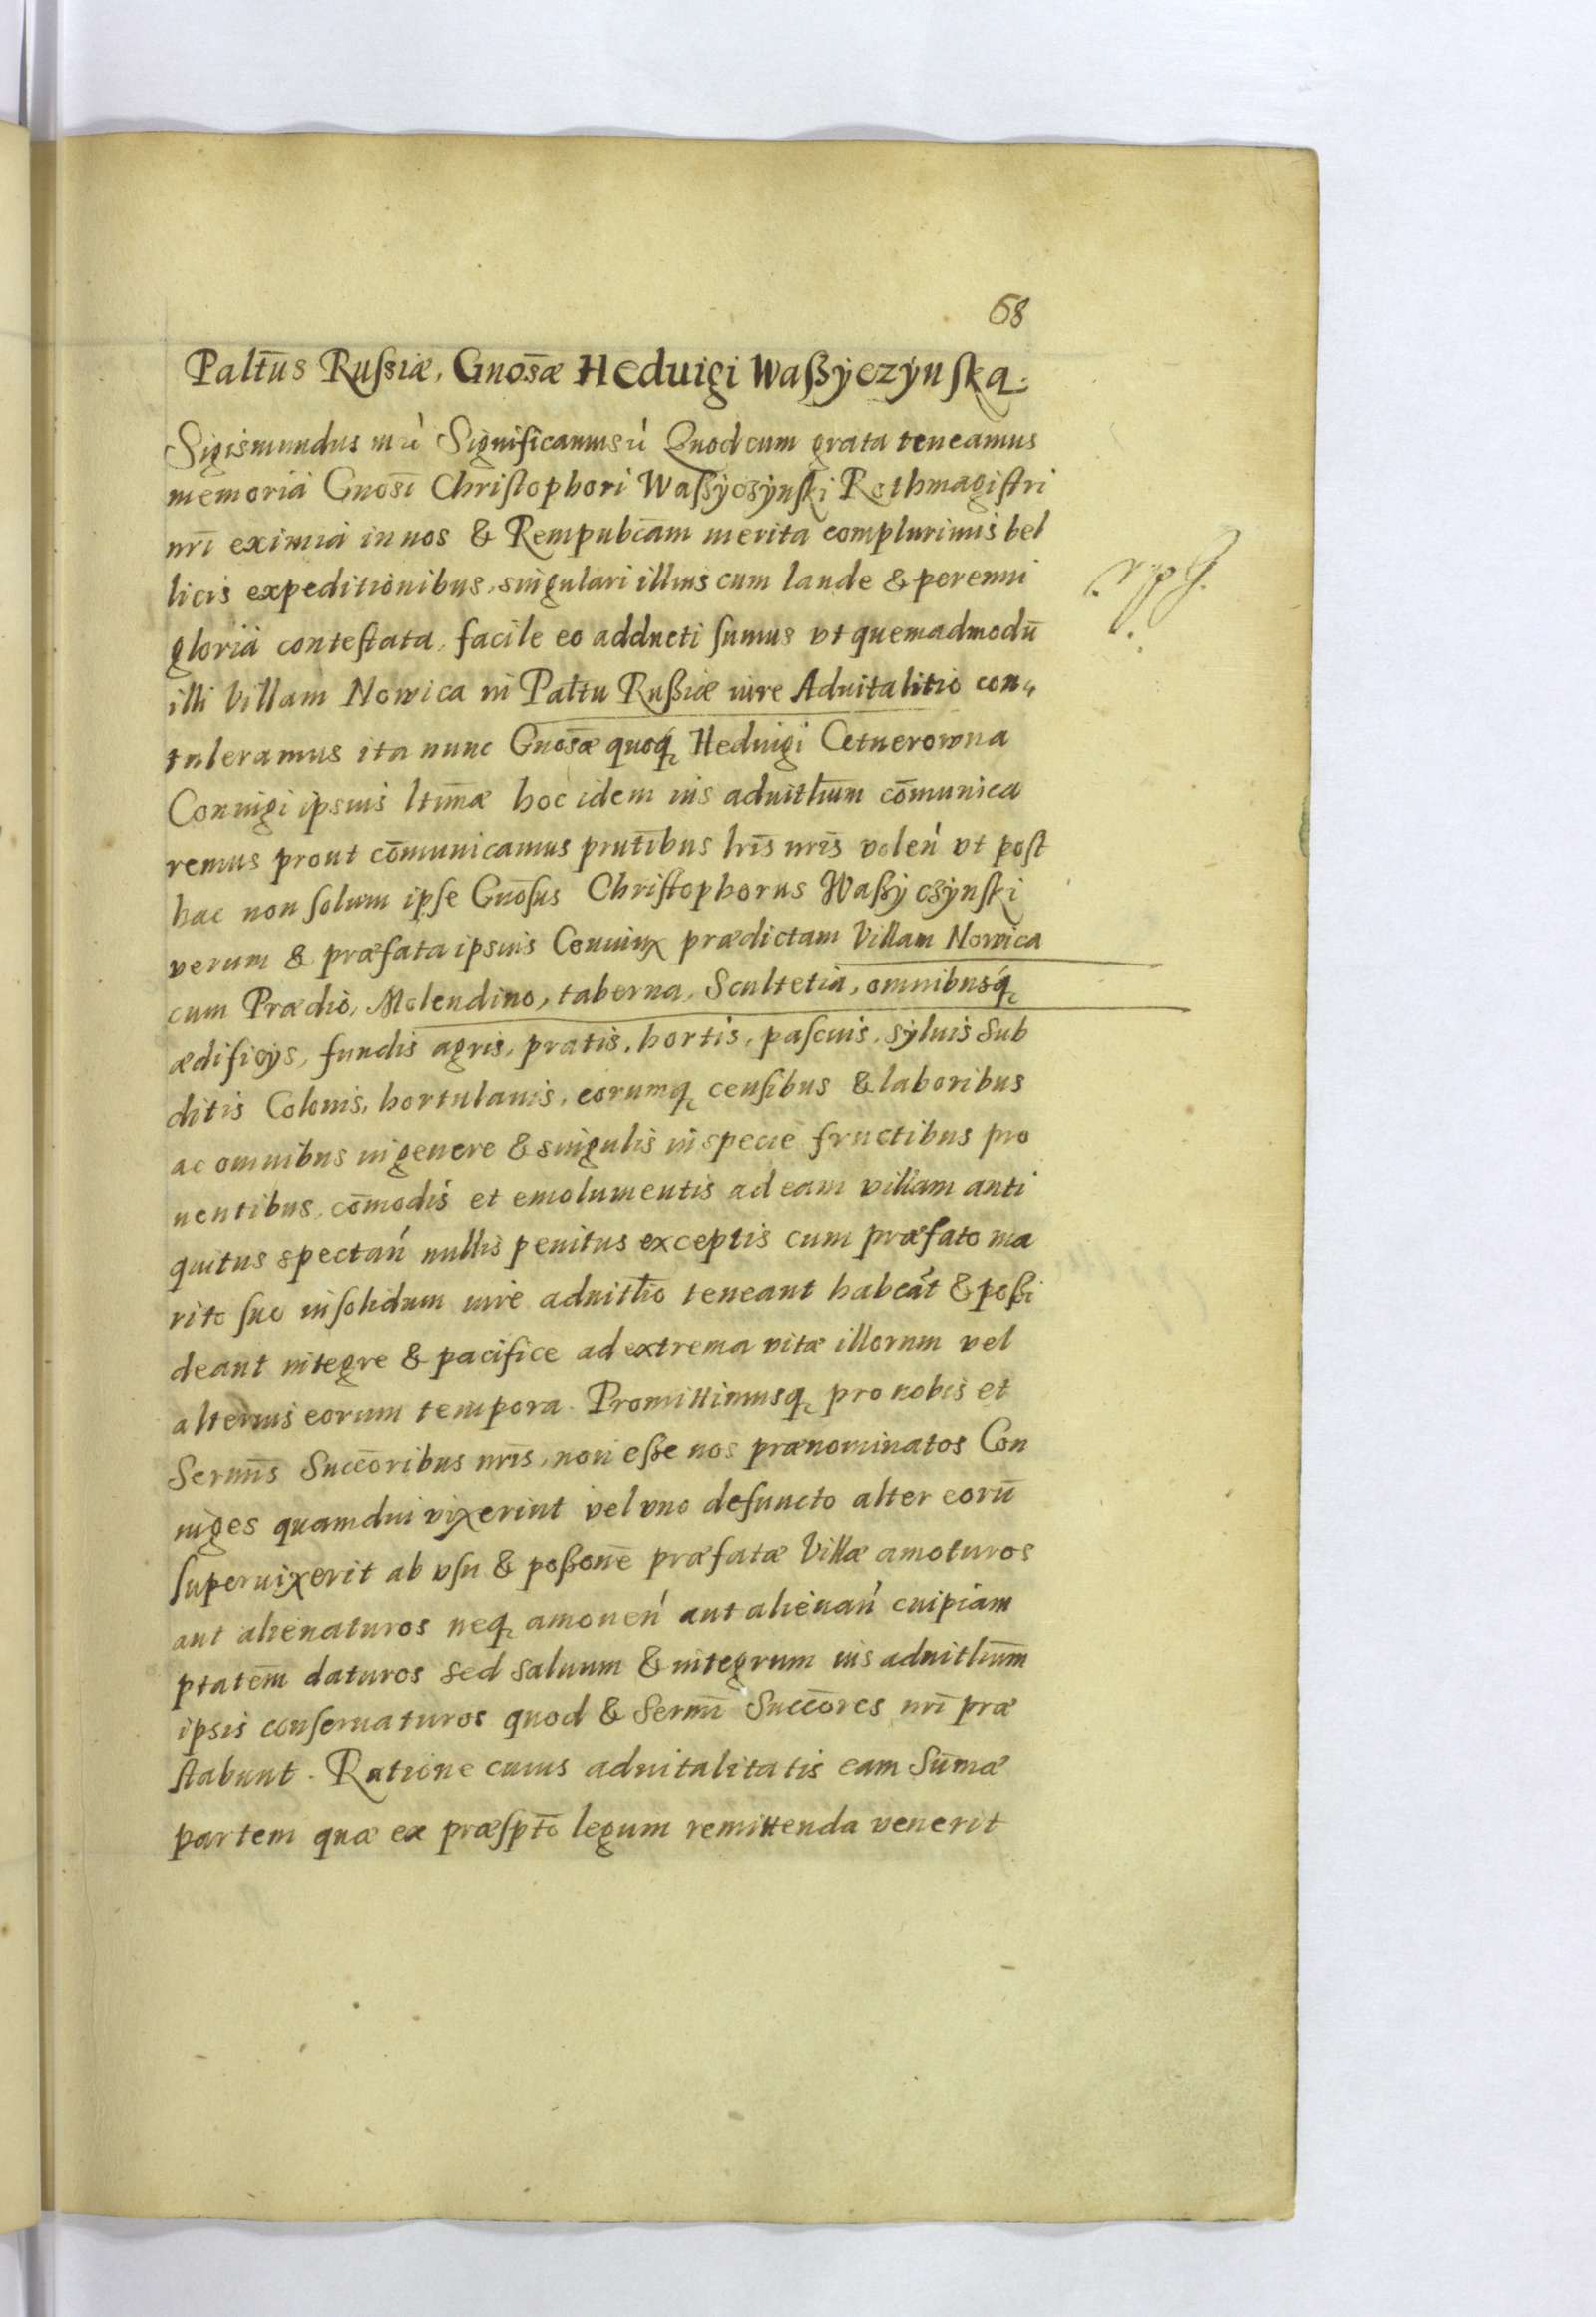 68
Palt̄us Rußiæ, Gnos̄æ Heduigi Waßÿczÿnska.
Sigismundus etc. Significamus etc. Quod cum grata teneamus
memoriá Gnosi Christophori Waßÿczÿnski Rothmagistri
nr̄i eximiá in nos & Rempubcam merita complurimis bel
licis expeditionibus, singulari illius cum laude & perenni
gloriá contestata, facile eo adducti sumus vt quemadmodū
illi Villam Nowica in Paltu Rußiæ iure Aduitalitio con,
tuleramus ita nunc Gnosæ quoq, Heduigi Cetnerowna
Coniugi ipsius ltimæ hoc idem ius aduitlium com̄unica
remus prout com̄unicamus pnt̄ibus lr̄is nr̄is voleń vt post
hac non solum ipse Gnosus Christophorus Waßÿczÿnski
verum & præfata ipsius Coniux prædictam Villam Nowica
cum Prædio, Molendino, taberna, Scultetia, omnibusq,
ædificÿs, fundis agris, pratis, hortis, pascuis, sÿluis Sub
ditis Colonis, hortulanis, eorumq, censibus & laboribus
ac omnibus in genere & singulis in specie fructibus pro
uentibus, com̄odis et emolumentis ad eam villam anti
quitus spectań nullis penitus exceptis cum præfato ma
rito suo in solidum iure aduitlio teneant habeāt & poßi
deant integre & pacifice ad extrema vitæ illorum vel
alterius eorum tempora. Promittimusq, pro nobis et
Sermīs Succoribus nr̄is, non eße nos prænominatos Con
iuges quamdiu vixerint vel vno defuncto alter eorū
superuixerit ab vsu & poßone præfatæ Villæ amoturos
aut alienaturos neq, amoueń aut alienań cuipiam
ptatem daturos sed saluum & integrum ius aduitlium
ipsis conseruaturos quod & Sermi Succores nr̄i præ
stabunt. Ratione cuius aduitalitatis eam Sum̄æ
partem quæ ex præspto legum remittenda venerit